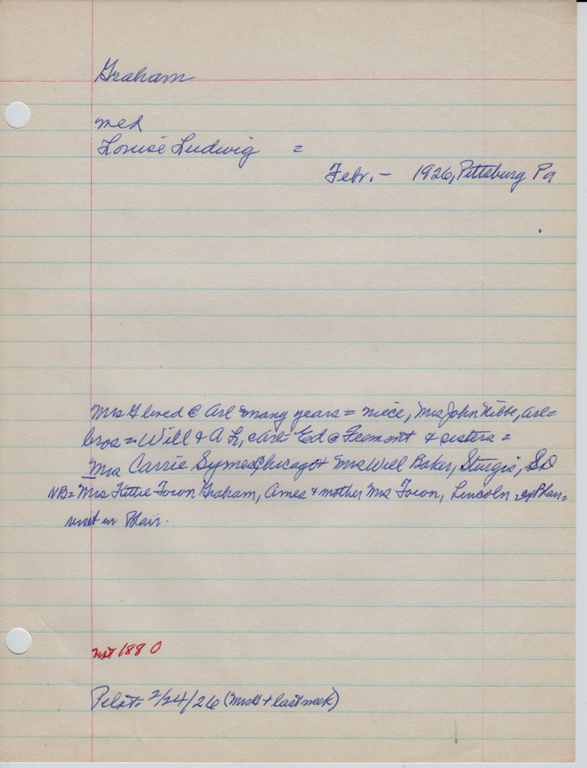 Graham
med
Louise Ludwig =
Febr. - 1926, Pittsburg Pa
Mrs G lived @ Arl many years = niece, Mrs John Kibbe, Arl =
bros = Will & A L, Arl - Ed @ Fremont & sisters =
Mrs Carrie Symes, Chicago & Mrs Will Baker, Sturgis, SD
NB = Mrs Kittie Town Graham, Ames & mother Mrs Town, Lincoln - ex Blair =
visit in Blair.
not 1880
Pilot = 2/24/26 (Mrs G + last week)